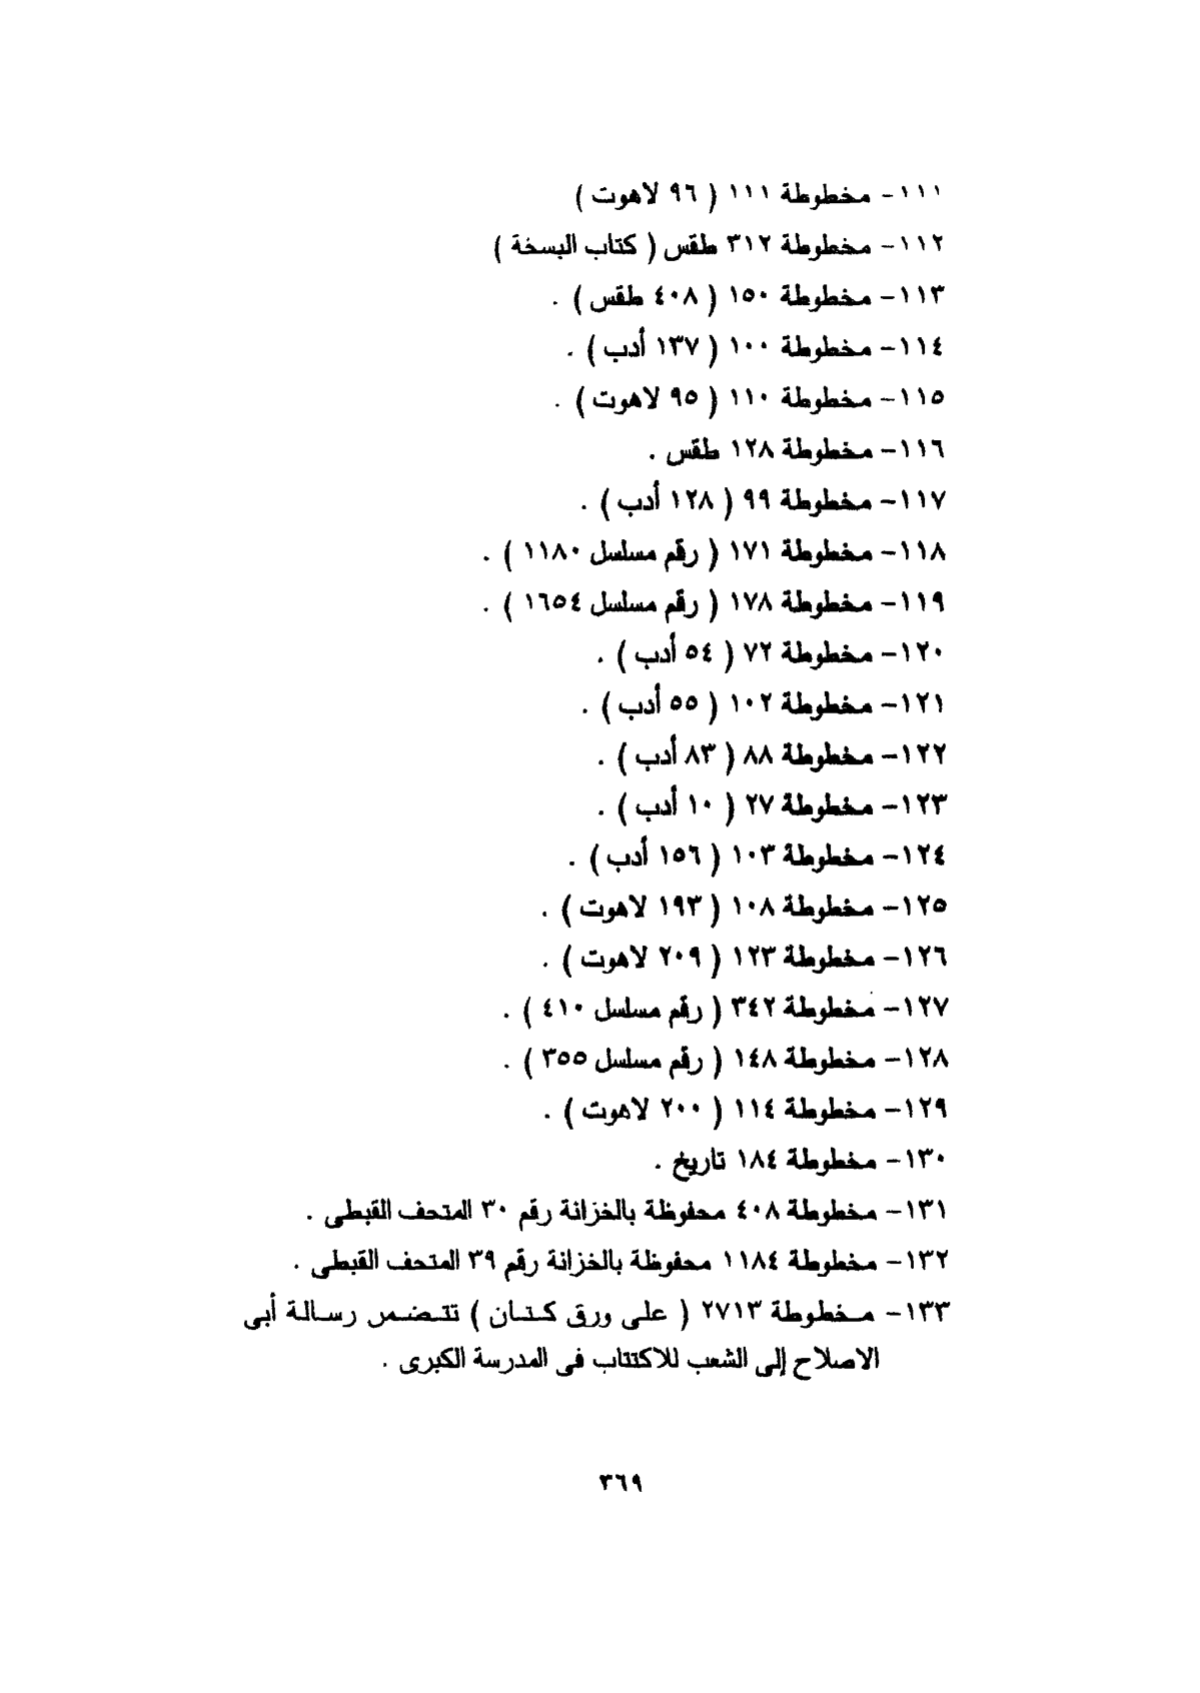 ١١١- مخطوطة ١١١ ( ٩٦ لاهوت )
١١٢- مخطوطة ٣١٢ طقس ( كتاب البسخة )
١١٣- مخطوطة ١٥٠ ( ٤٠٨ طقس ) .
١١٤- مخطوطة ١٠٠ ( ١٣٧ أدب ) .
١١٥- مخطوطة ١١٠ ( ٩٥ لاهوت ) .
١١٦- مخطوطة ١٢٨ طقس .
١١٧- مخطوطة ٩٩ ( ١٢٨ أدب ) .
١١٨- مخطوطة ١٧١ ( رقم مسلسل ١١٨٠ ) .
١١٩- مخطوطة ١٧٨ ( رقم مسلسل ١٦٥٤ ) .
١٢٠- مخطوطة ٧٢ ( ٥٤ أدب ) .
١٢١- مخطوطة ١٠٢ ( ٥٥ أدب ) .
١٢٢- مخطوطة ٨٨ ( ٨٣ أدب ) .
١٢٣- مخطوطة ٢٧ ( ١٠ أدب ) .
١٢٤- مخطوطة ١٠٣ ( ١٥٦ أدب ) .
١٢٥- مخطوطة ١٠٨ ( ١٩٣ لاهوت ) .
١٢٦- مخطوطة ١٢٣ ( ٢٠٩ لاهوت ) .
١٢٧- مخطوطة ٣٤٢ ( رقم مسلسل ٤١٠ ) .
١٢٨- مخطوطة ١٤٨ ( رقم مسلسل ٣٥٥ ) .
١٢٩- مخطوطة ١١٤ ( ٢٠٠ لاهوت ) .
١٣٠- مخطوطة ١٨٤ تاريخ .
١٣١- مخطوطة ٤٠٨ محفوظة بالخزانة رقم ٣٠ المتحف القبطى .
١٣٢- مخطوطة ١١٨٤ محفوظة بالخزانة رقم ٣٩ المتحف القبطى .
١٣٣- مخطوطة ٢٧١٣ ( على ورق كتان ) تتضمر رسالة أبى
الاصلاح إلى الشعب للاكتتاب فى المدرسة الكبرى .
٣٦٩